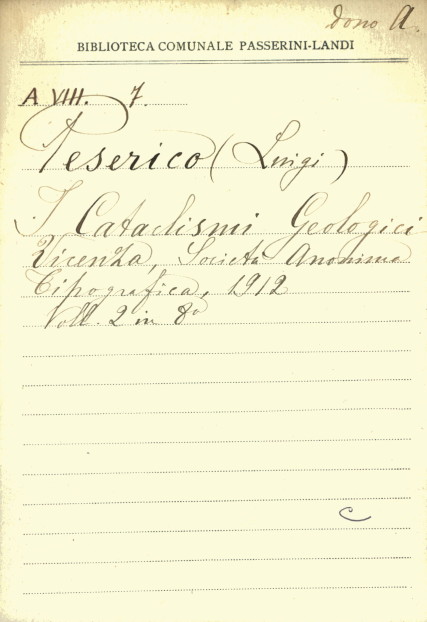 dono A.
BIBLIOTECA COMUNALE PASSERINI-LANDI
A VIII. 7.
Peserico (Luigi)
I Cataclismi Geologici
Vicenza, Società Anonima
Tipografica, 1912
Voll. 2 in 8º
C